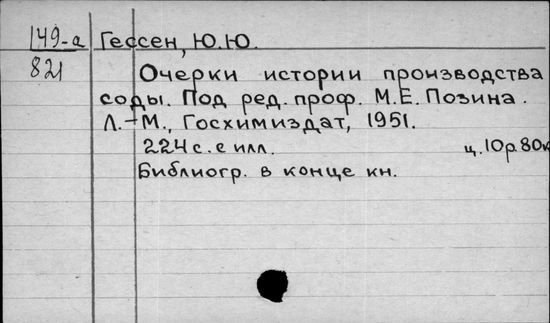 149-а Гессен, Ю.Ю.
821 Очерки истории производства
соды. Под ред. проф. М.Е. Позина.
Л.-М., Госхимиздат, 1951.
224 с. с илл. ц. 10р. 80к
Библиогр. в конце кн.